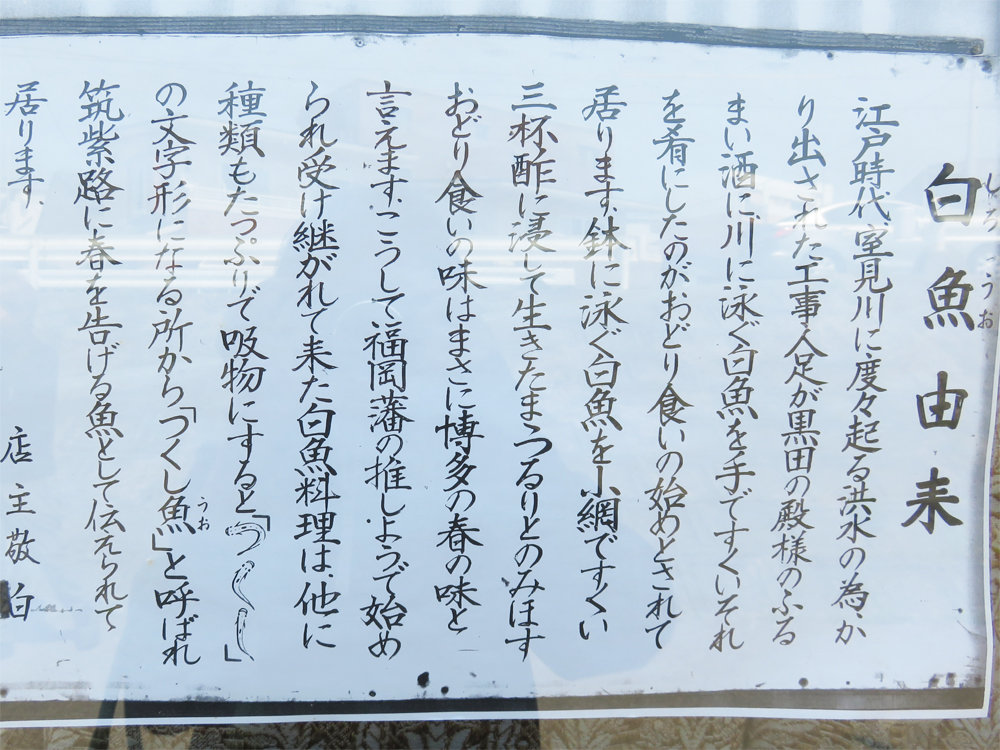 白魚由来
しろうお
江戸時代室見川に度々起る洪水の為、か
り出された工事人足が黒田の殿様のふる
まい酒に、川に泳ぐ白魚を手ですくいそれ
を肴にしたのがおどり食いの始めとされて
居ります、鉢に泳ぐ白魚を小網ですくい
三杯酢に浸して生きたまつるりとのみほす
おどり食いの味はまさに博多の春の味と
言えます、こうして福岡藩の推しようで始め
られ受け継がれて来た白魚料理は、他に
種類もたっぷりで吸物にすると「つくし」
の文字形になる所から「つくし魚」と呼ばれ
うお
筑紫路に春を告げる魚として伝えられて
居ります、
店主敬白